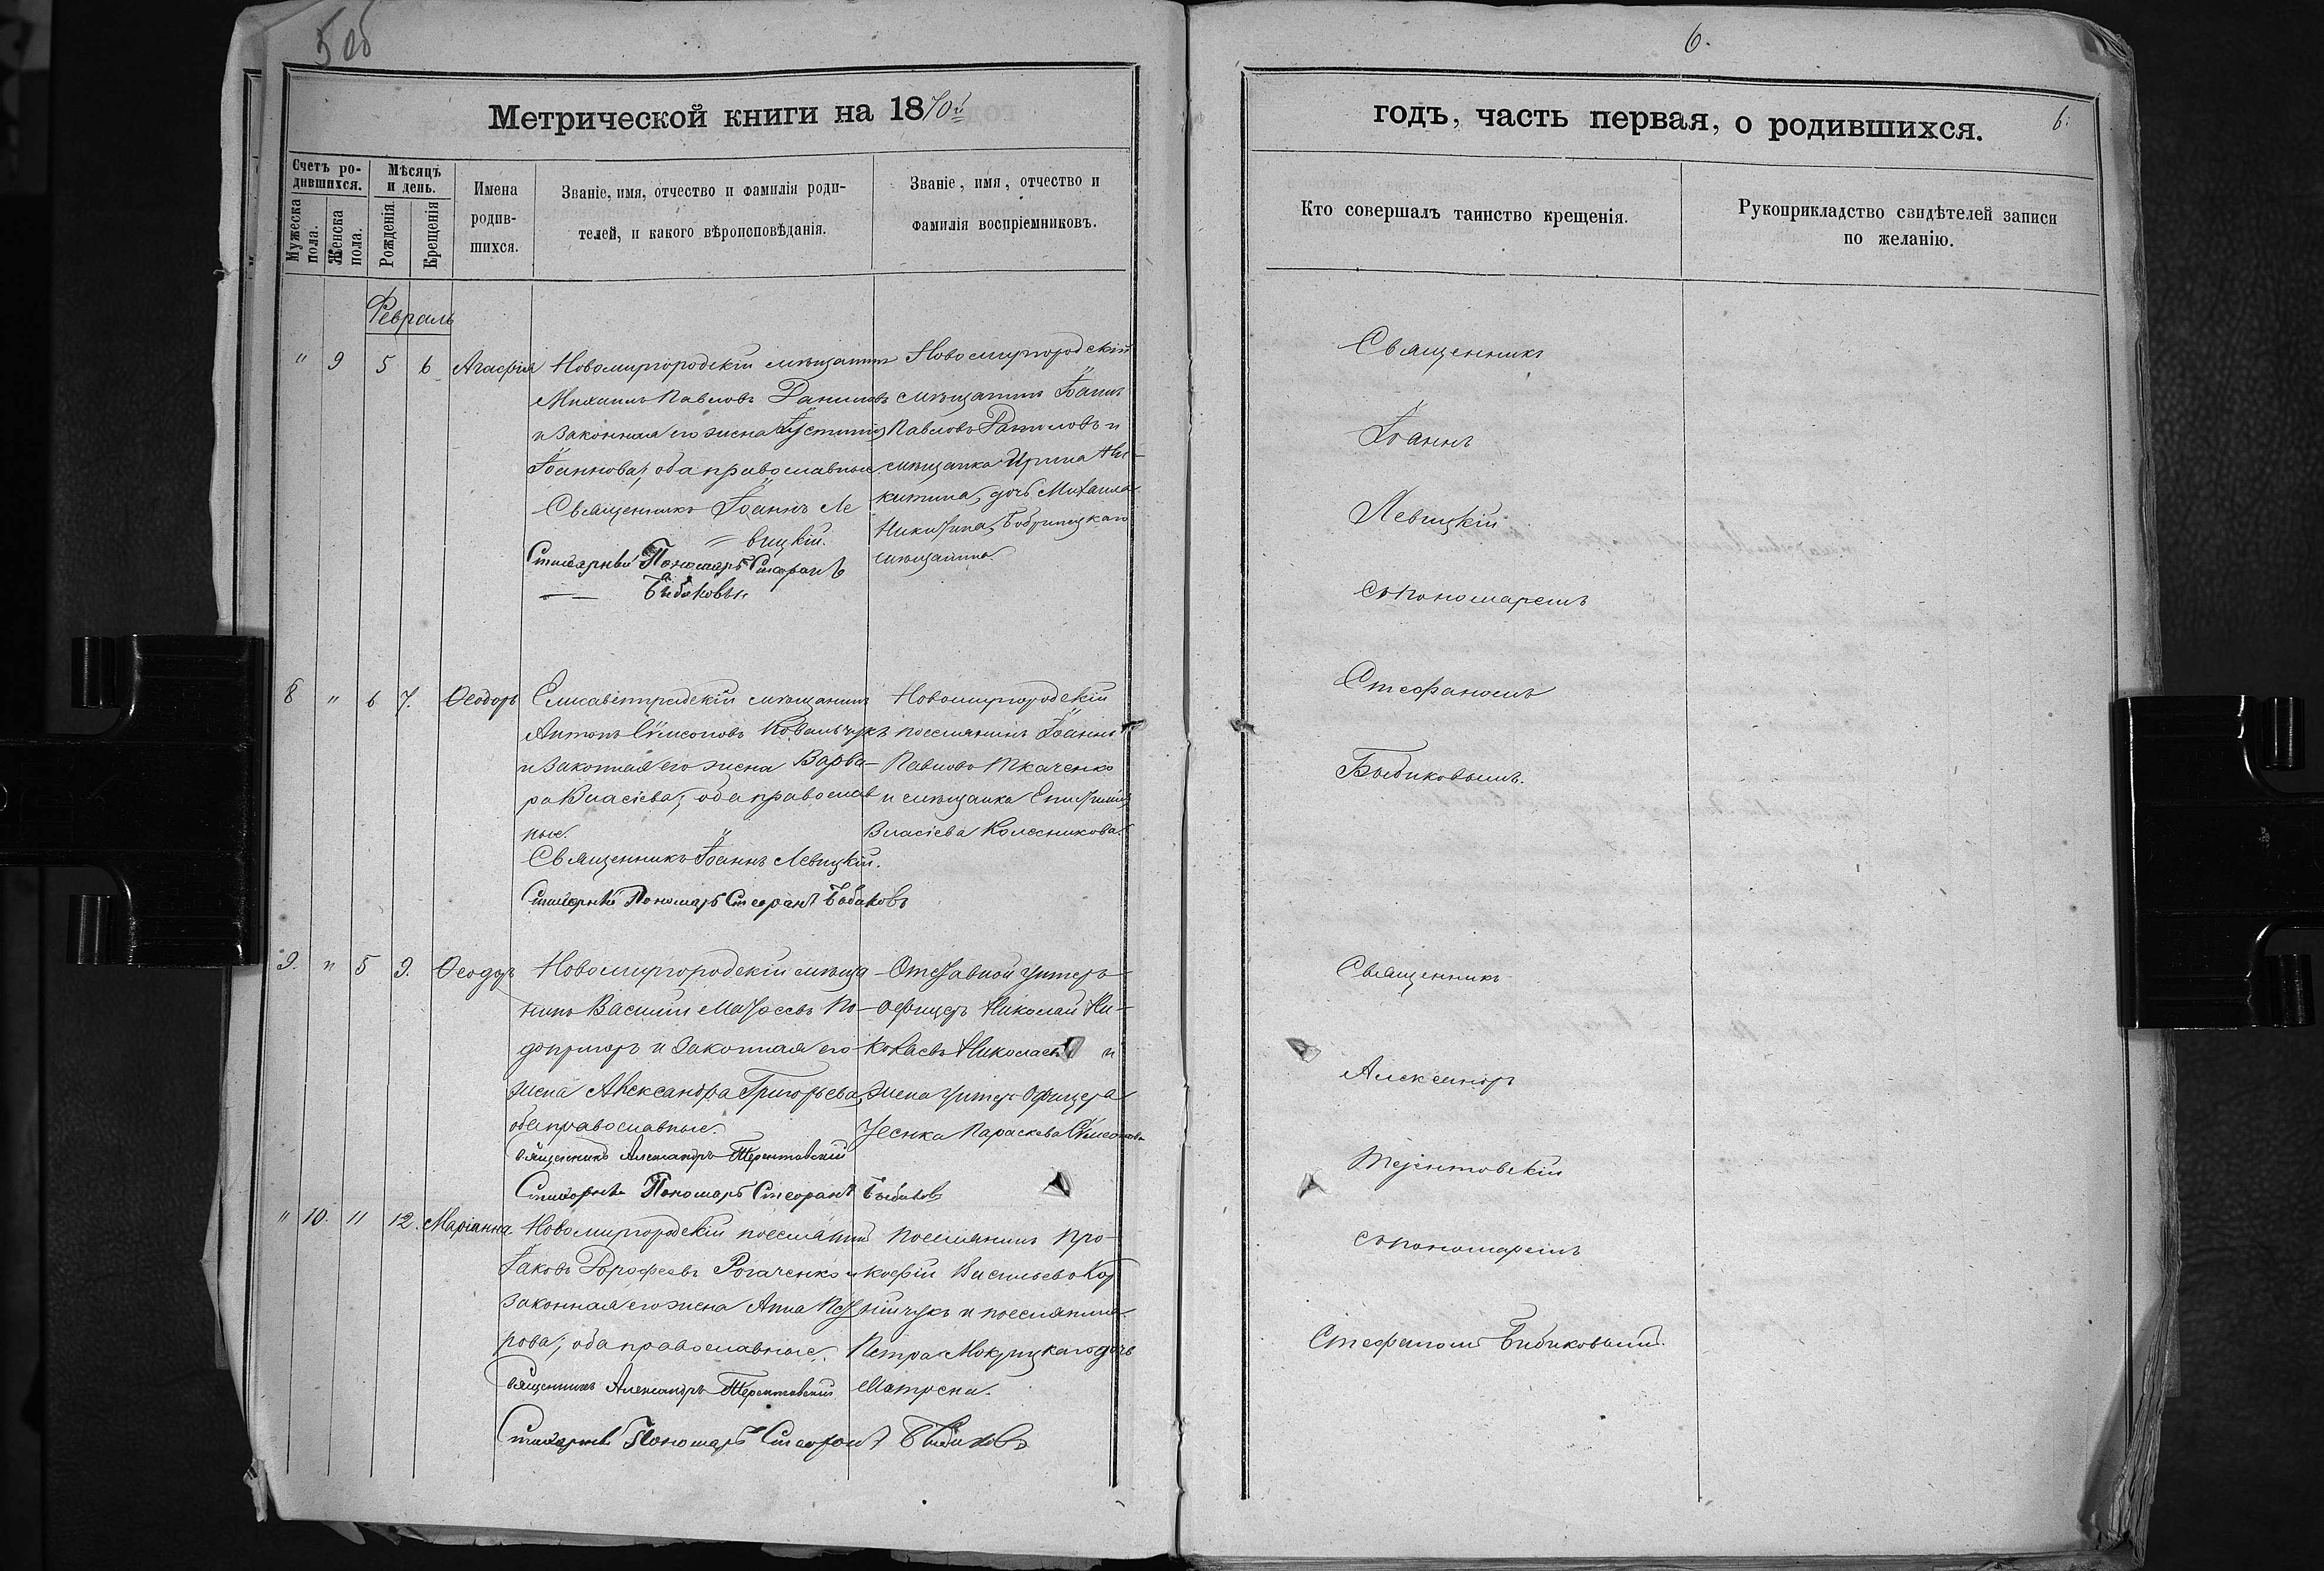 5об
Метрической книги на 1870й
Счетъ ро-
дившихся.
Мѣсяцъ
и день.
Мужеска
пола.
Женска
пола.
Рожденія.
Крещенія
Имена
родив-
шихся.
Званіе, имя, отчество и фамилія роди-
телей, и какого вѣроисповѣданія.
Званіе, имя, отчество и
фамилія воспріемниковъ.
Февраль
" 9 5 6 Агафія
Новомиргородскій мѣщанинъ
Михаилъ Павловъ Даниловъ
и законная его жена Іустинія
Іоаннова, оба православные
Священникъ Іоаннъ Ле
=вицкій.
Стихарный Пономарь Стефанъ
Бибиковъ
Новомиргородскій
мѣщанинъ Іоаннъ
Павловъ Даниловъ и
мѣщанка Ирина Ни-
китина, дочь Михаила
Никитина, Бобринецкаго
мѣщанина
8 " 6 7. Ѳеодоръ
Елисаветградскій мѣщанинъ
Антонъ Сѵмеоновъ Ковальчукъ
и законная его жена Варва-
ра Власіева, оба православ
ные.
Священникъ Іоаннъ Левицкій.
Стихарный Пономарь Стефанъ Бибиковъ
Новомиргородскій
поселянинъ Іоаннъ
Павловъ Ткаченко
и мѣщанка
Власіева Колесникова.
9. " 5 9. Ѳеодоръ
Новомиргородскій мѣща-
нинъ Василій По-
и законная его
жена Александра Григорьева,
оба православные.
Священникъ Александръ Терентовскій
Стихарный Пономарь Стефанъ Бибиковъ
Отставной унтеръ-
офицеръ Николай Ни-
колаевъ Николаевъ и
жена унтеръ-офицера
Параскева Сѵмеонова
" 10. 11 12. Маріанна
Новомиргородскій поселянинъ
Іаковъ Дорофеевъ Рогаченко и
законная его жена Анна Пет
рова, оба православные.
Священникъ Александръ Терентовскій
Стихарный Пономарь Стефанъ Бибиковъ
Поселянинъ Про-
кофій Васильевъ Кор
нійчукъ и поселянина
Петра Мокрицкаго дочь
Матрона.
6.
годъ, часть первая, о родившихся.
6.
Кто совершалъ таинство крещенія.
Рукоприкладство свидѣтелей записи
по желанію.
Священникъ
Іоаннъ
Левицкій
съ пономаремъ
Стефаномъ
Бибиковымъ.
Священникъ
Александръ
Терентовскій
съ пономаремъ
Стефаномъ Бибиковымъ.